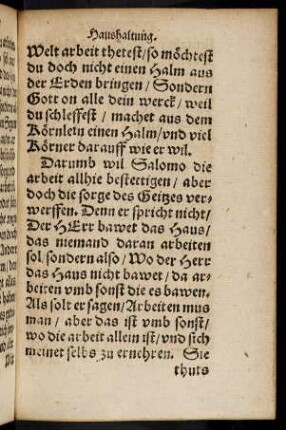 Haushaltung.
Welt arbeit thetest/so möchtest
du doch nicht einen Halm aus
der Erden bringen/Sondern
Gott on alle dein werck/weil
du schleffest/machet aus dem
Körnlein einen Halm/vnd viel
Körner darauff wie er wil.
Darumb wil Salomo die
arbeit allhie bestettigen/aber
doch die sorge des Geitzes ver-
werffen. Denn er spricht nicht/
Der HErr bawet das Haus/
das niemand daran arbeiten
sol/sondern also/Wo der Herr
das Haus nicht bawet/da ar-
beiten vmb sonst die es bawen.
Als solt er sagen/Arbeiten mus
man/aber das ist vmb sonst/
wo die arbeit allein ist/vnd sich
meinet selbs zu ernehren. Sie
thuts